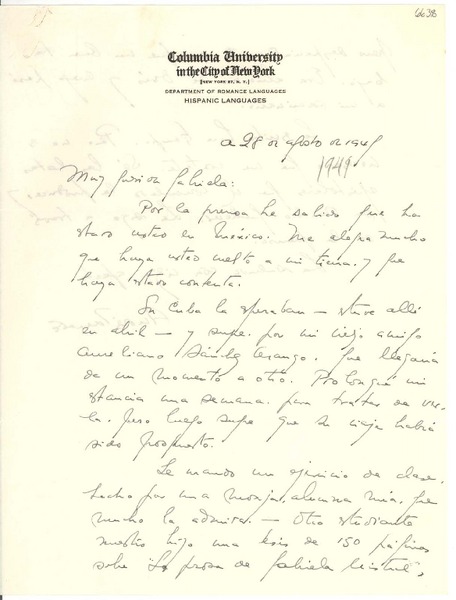 6638
Columbia University
in the City of New York
[NEW YORK 27, N. Y.]
DEPARTMENT OF ROMANCE LANGUAGES
HISPANIC LANGUAGES
a 28 de agosto de 1949
1949
Muy querida Gabriela:
Por la prensa he sabido que ha
estado usted en México. Me alegra mucho
que haya usted vuelto a mi tierra, y que
haya estado contenta.
En Cuba la esperaban — estuve allí
en abril — y supe por mi viejo amigo
Aureliano Sánchez Arango, que llegaría
de un momento a otro. Prolongué mi
estancia una semana para tratar de ver-
la. Pero luego supe que su viaje había
sido pospuesto.
Le mando un ejercicio de clase,
hecho por una monja, alumna mía, que
mucho la admira. — Otro estudiante
nuestro hizo una tesis de 150 páginas
sobre La prosa de Gabriela Mistral,